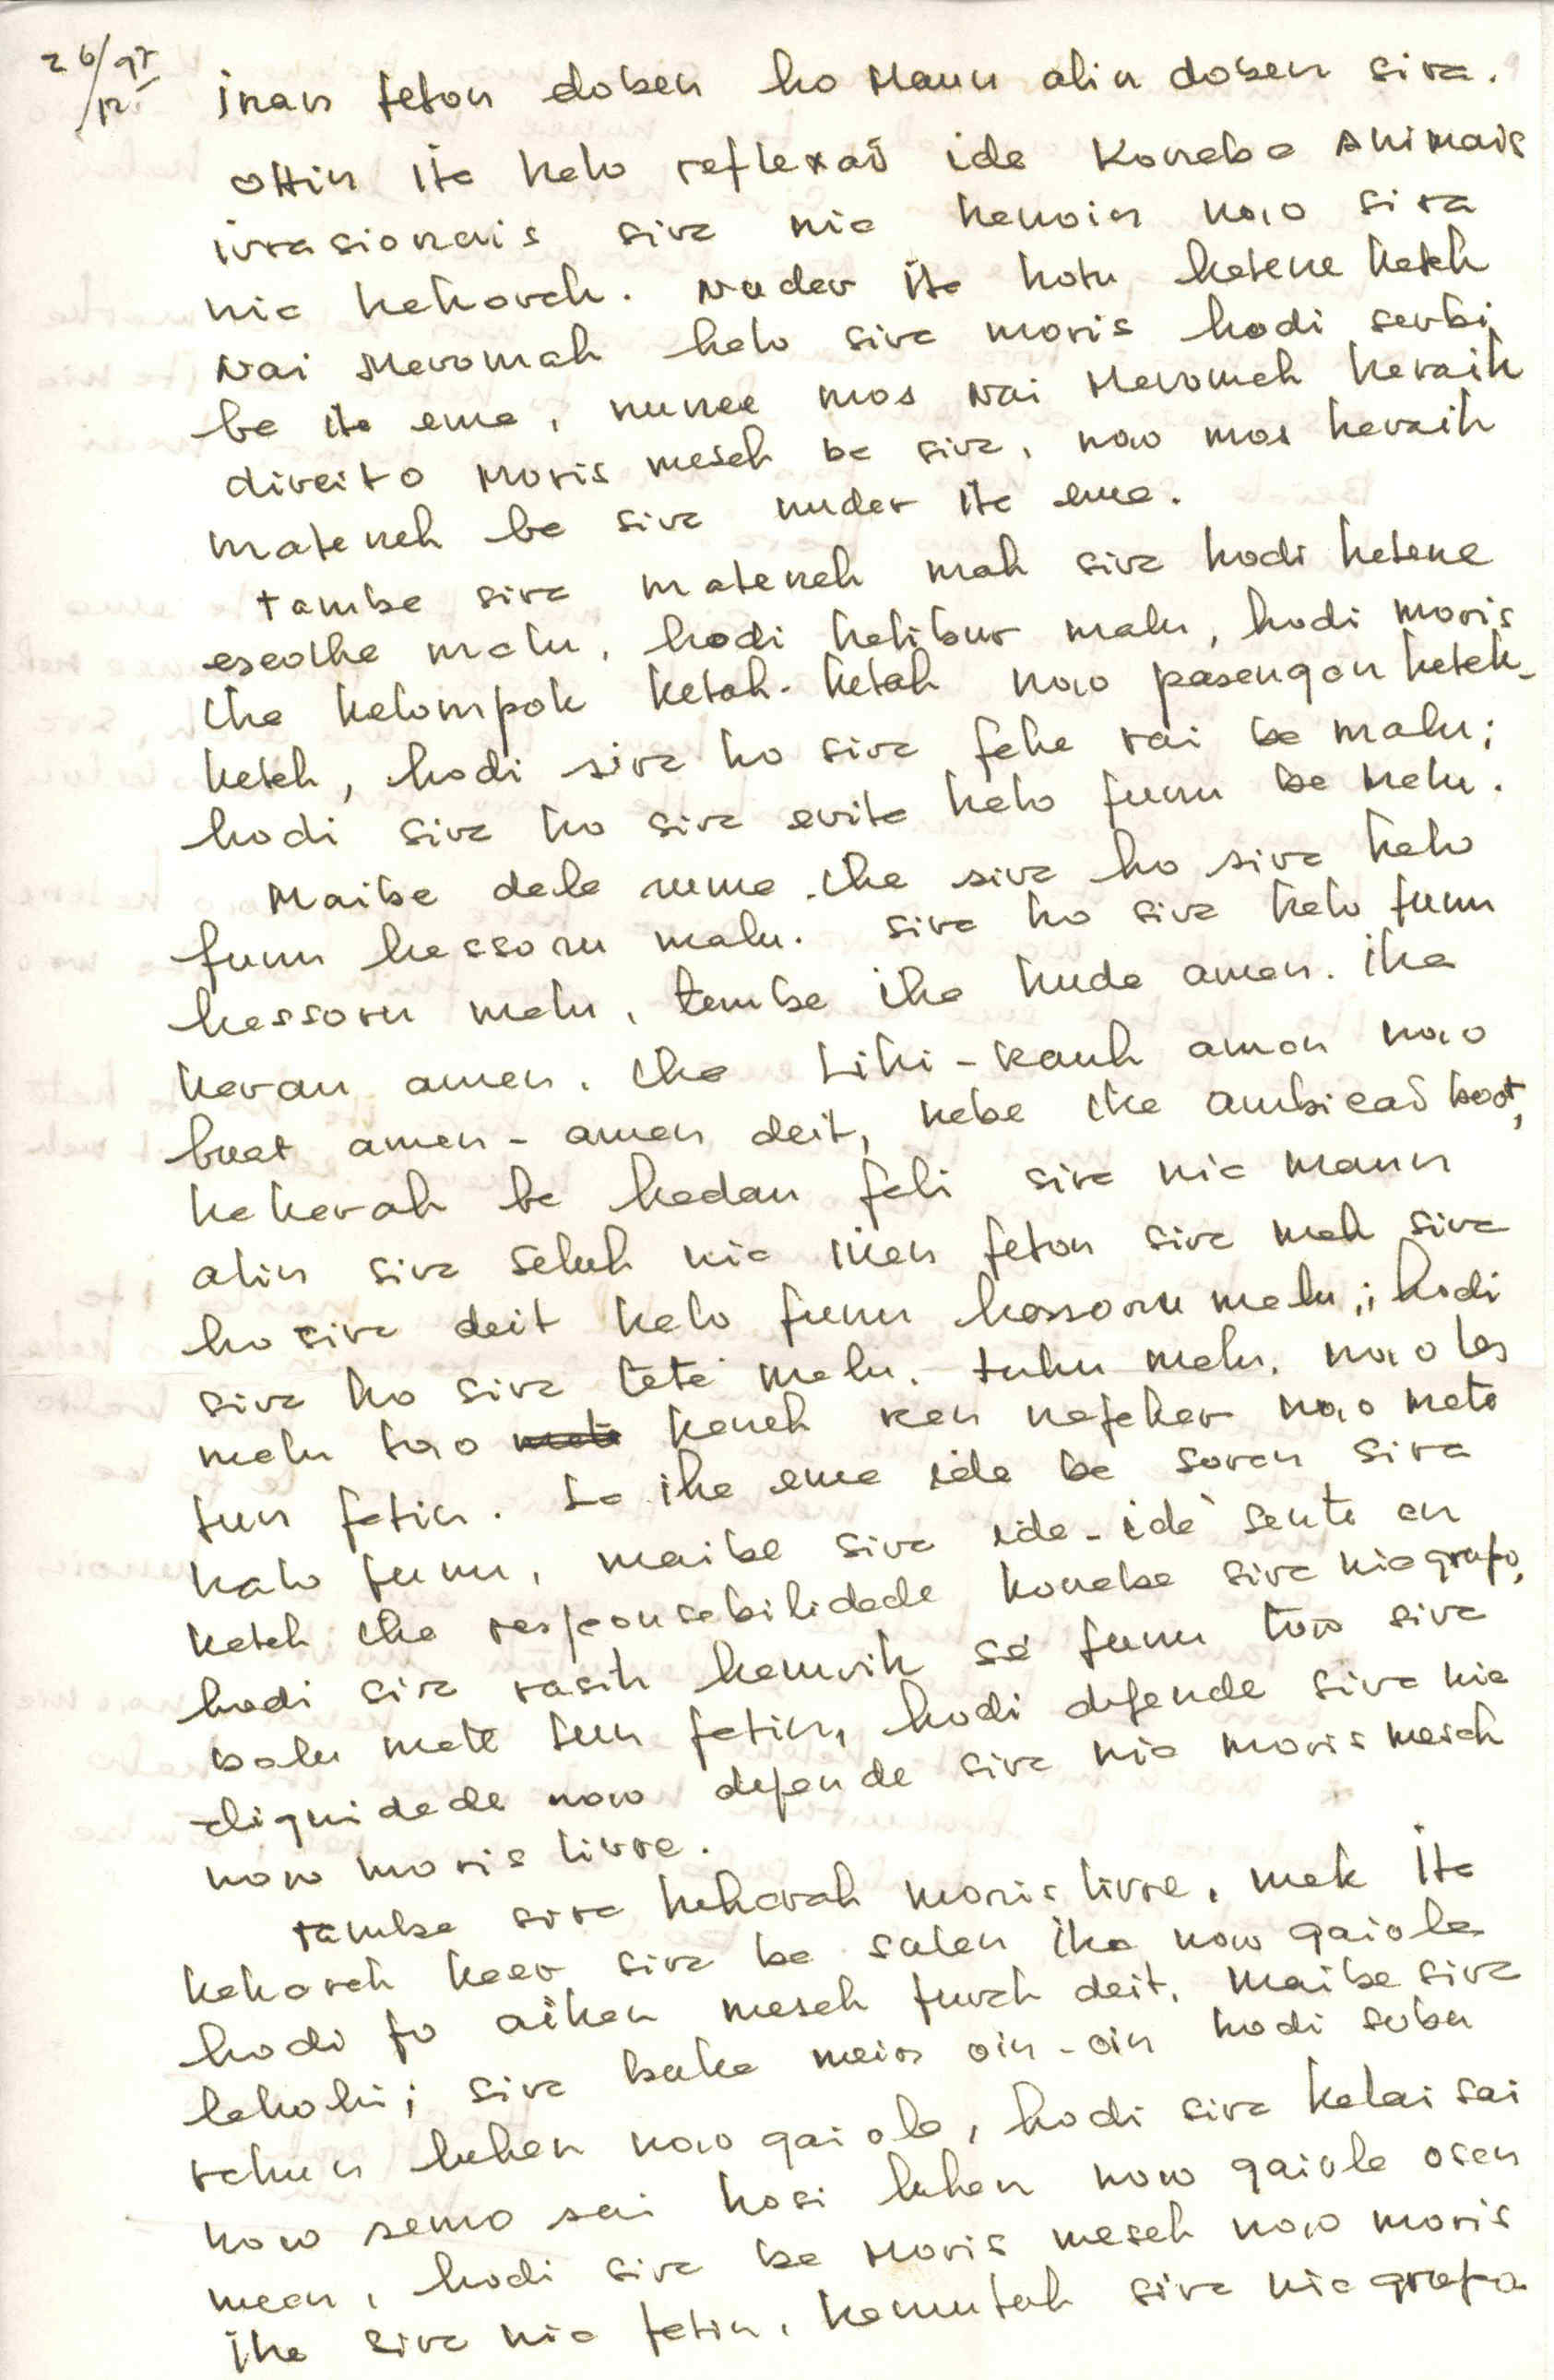 26/97
/12
Inan feton doben ho Maun alin doben sira.
Ohin ita halo reflexaõ ida konaba Animais
irrasionais sira nia hanoin nao sira
nia hakarak. Nudar ita hotu hatene katak
Nai Maromak halo sira moris hodi serbi
ba ita ema, nunee mos Nai Maromak haraik
direito Moris mesak ba sira, nao mos haraik
matenek ba sira nudar ita ema.
Tamba sira matenek mak sira hodi hatene
eseolha malu, hodi halibur malu, hodi moris
iha kelompok ketak-ketak nao pasangan ketak-
ketak, hodi sira ho sira fahe rai ba malu;
hodi sira ho sira evita halo funu ba malu.
Maibe dala ruma iha sira ho sira halo
funu hassoru malu. Sira ho sira halo funu
hassoru malu, tamba iha huda aman. Iha
karau aman. Iha Liki-rauk aman nao
buat aman-aman deit, nebe iha ambicaõ boot,
hakarak ba hadau fali sira nia maun
alin sira seluk nia inan feton sira mak sira
ho sira deit halo funu hassoru malu; hodi
sira ho sira tata malu, tuku malu, nao les
malu too kanek ran nafakar nao mate
tun fatin. La iha ema ida be soran sira
halo funu, maibe sira ida-ida senti an
katak iha responsabilidade konaba sira nia grupo,
hodi sira rasik hamrik sé funu too sira
balu mate tun fatin, hodi defende sira nia
diguidade nao defende sira nia moris mesak
nao moris livre.
Tamba sira hakarak moris livre, mak ita
hakarak haer sira ba salen iha nao gaiola
hodi fo aihan mesak furak deit. Maibe sira
lakohi; sira buka meios oin-oin hodi soba
rahun luhan nao gaiola, hodi sira halai sai
nao semo sai hosi luhan nao gaiola osan
mean, hodi sira ba Moris mesak nao moris
iha sira nia fatin, hamutuk sira nia grupo